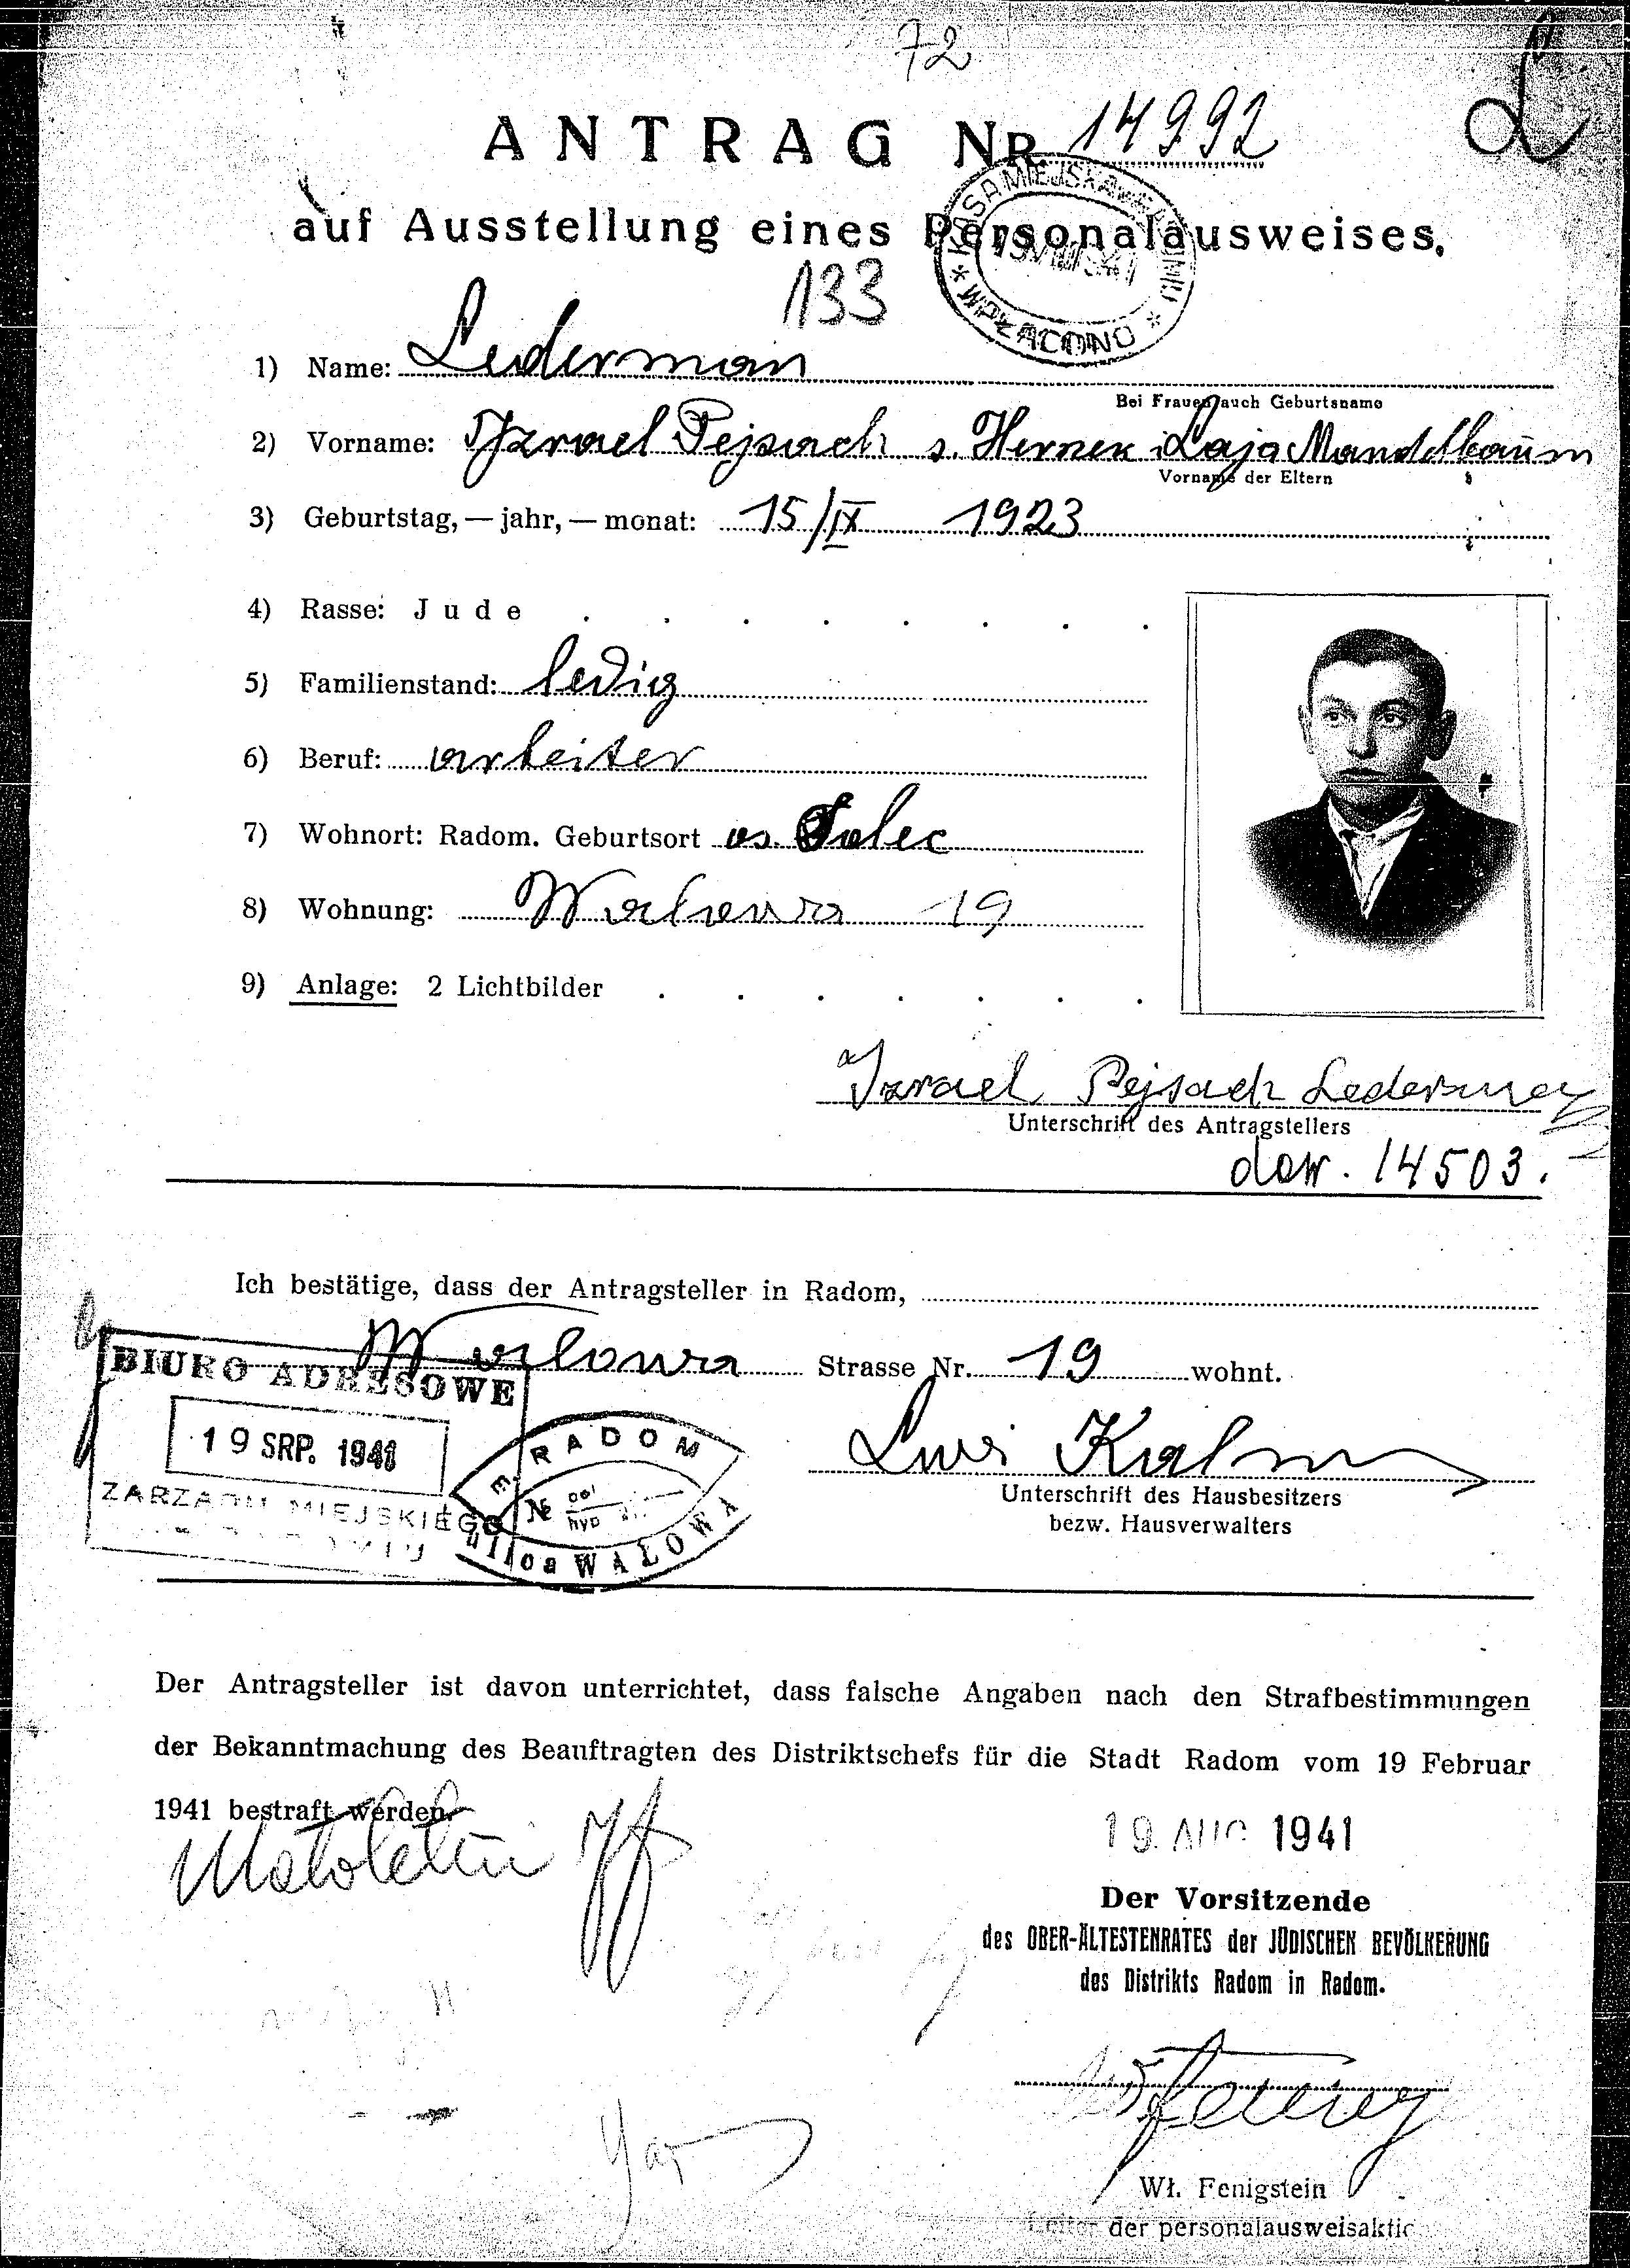 72
L
ANTRAG NR. 14992
auf Ausstellung eines Personalausweises.
KASA MIEJSKA
* WPŁACONO *
133
1) Name: Lederman
Bei Frauen auch Geburtsname
2) Vorname: Izrael Pejsach s. i Łaja Mandelbaum
Vorname der Eltern
3) Geburtstag, — jahr, — monat: 15/IX 1923
4) Rasse: Jude
5) Familienstand: ledig
6) Beruf: arbeiter
7) Wohnort: Radom. Geburtsort os. Solec
8) Wohnung: Wałowa 19
9) Anlage: 2 Lichtbilder
Izrael Pejsach Lederman
Unterschrift des Antragstellers
dow. 14503.
Ich bestätige, dass der Antragsteller in Radom,
Wałowa Strasse Nr. 19 wohnt.
BIURO ADRESOWE
19 SRP. 1941
ZARZĄDU MIEJSKIEGO
RADOM
№ hyp
ulica WAŁOWA
Unterschrift des Hausbesitzers
bezw. Hausverwalters
Der Antragsteller ist davon unterrichtet, dass falsche Angaben nach den Strafbestimmungen
der Bekanntmachung des Beauftragten des Distriktschefs für die Stadt Radom vom 19 Februar
1941 bestraft werden.
19. AUG 1941
Der Vorsitzende
des OBER-ÄLTESTENRATES der JÜDISCHEN BEVÖLKERUNG
des Distrikts Radom in Radom.
Wł. Fenigstein
Leiter der personalausweisaktio